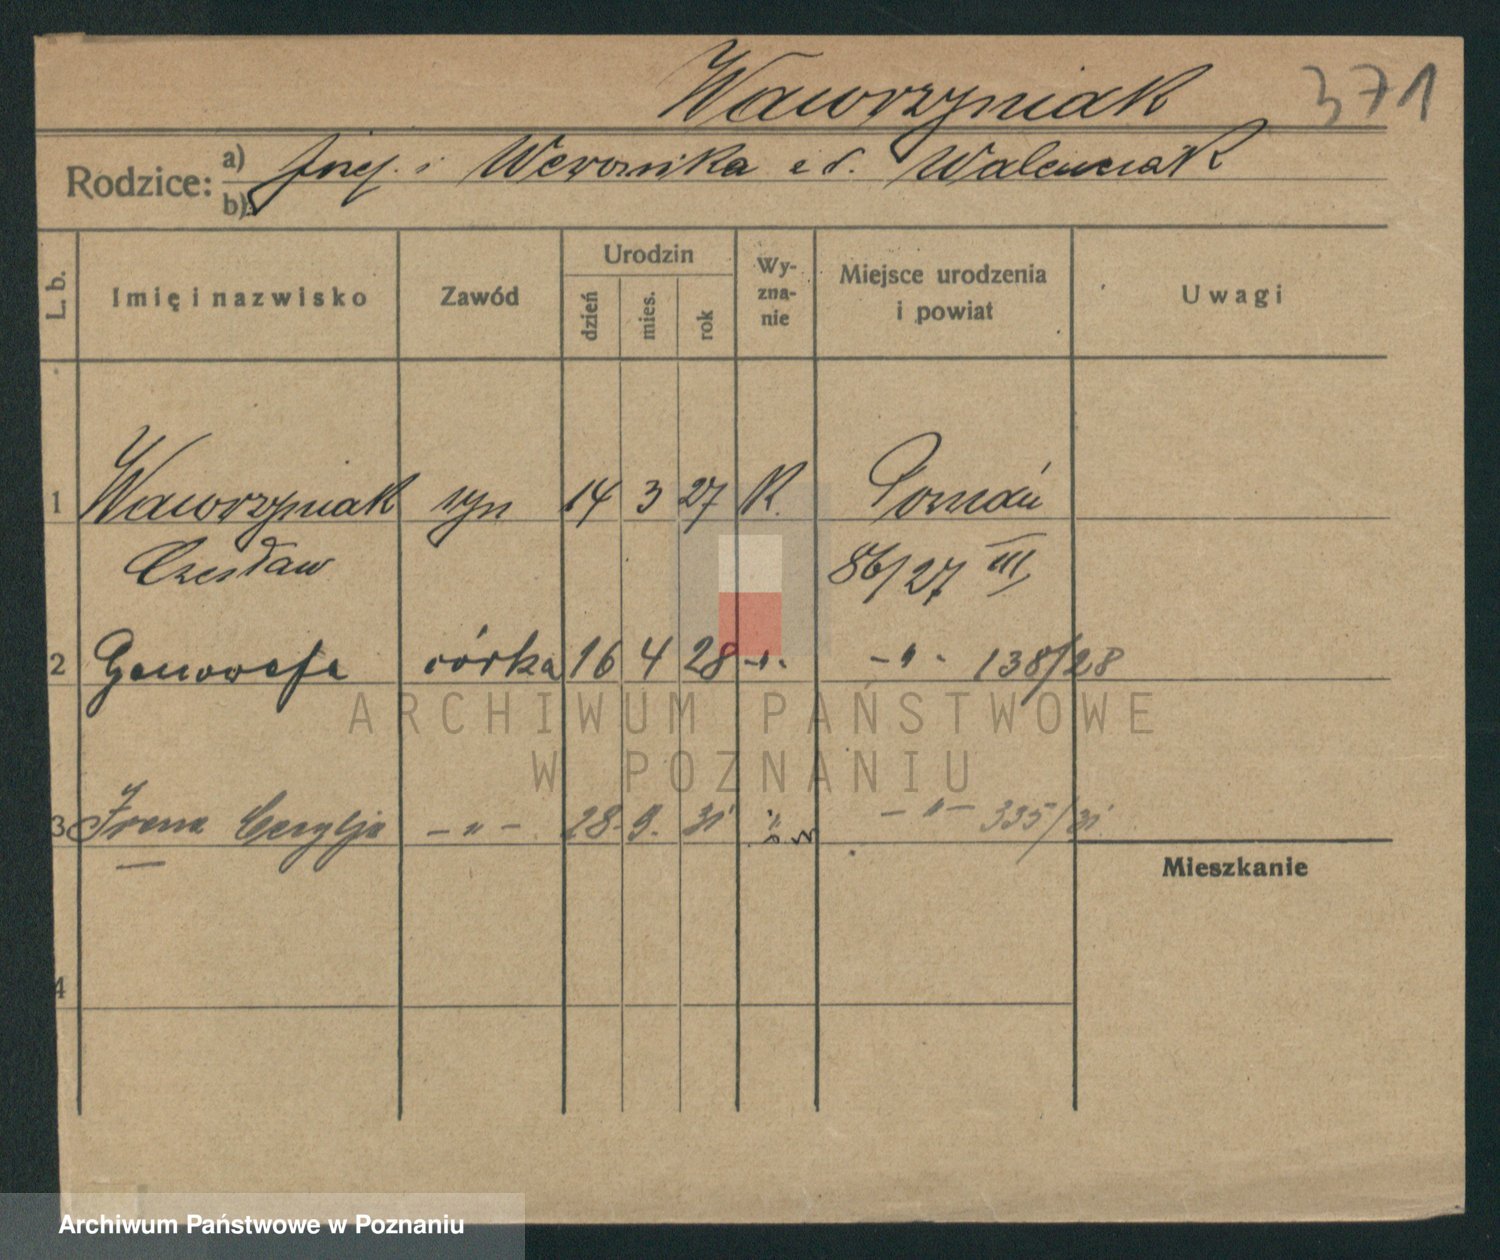 Wawrzyniak 371
Rodzice: a) Józef i Weronika z d. Walenciak
b)
L. b. Imię i nazwisko Zawód Urodzin dzień mies. rok Wy-zna-nie Miejsce urodzenia i powiat Uwagi
1 Wawrzyniak syn 14 3 27 K. Poznań
Czesław 86/27 III
2 Genowefa córka 16 4 28 -„- -„- 138/28
ARCHIWUM PAŃSTWOWE
W POZNANIU
3 Irena Cecylja -„- 28. 9. 31 „ -„- 335/31
Mieszkanie
4
Archiwum Państwowe w Poznaniu